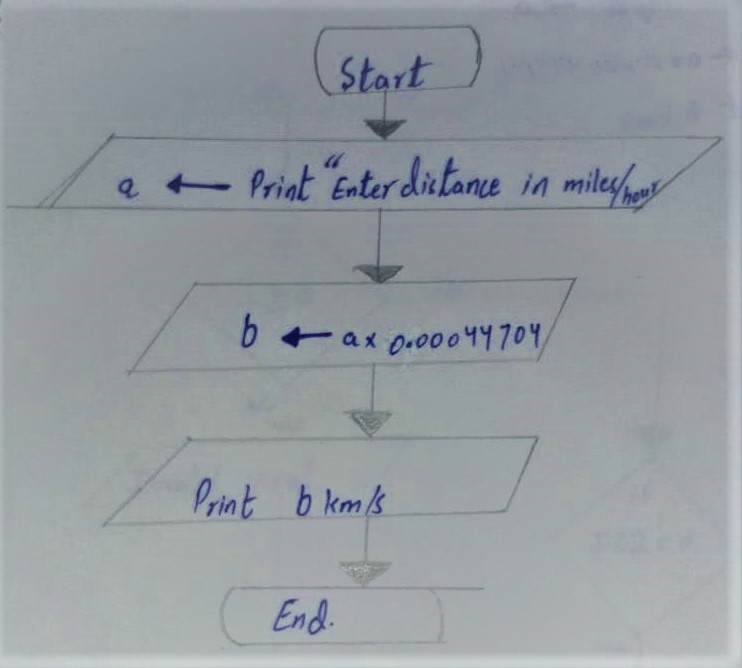 Start
a ← Print "Enter distance in miles/hour
b ← a x 0.00044704
Print b km/s
End.